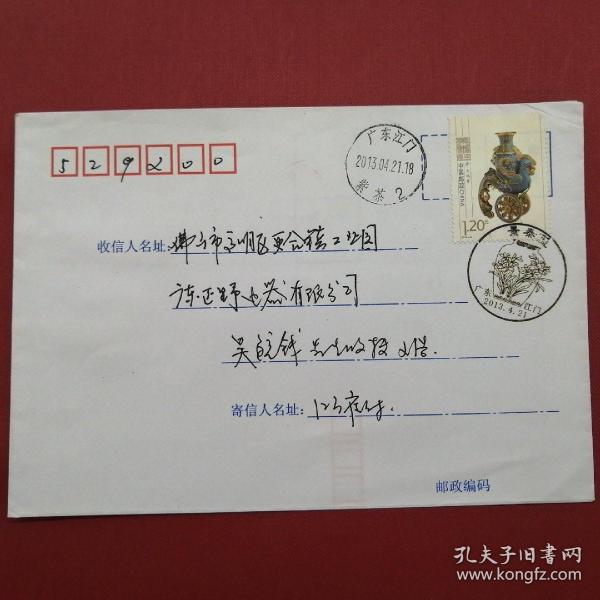 529200
广东江门
2013.04.21.18
紫茶 2
中国邮政 CHINA
1.20元
景泰蓝
广东 江门
2013.4.21
收信人名址:佛山市高明区更合镇工业园
广东正野电器有限公司
先生收
寄信人名址:江门
邮政编码
孔夫子旧书网
www.kongfz.com